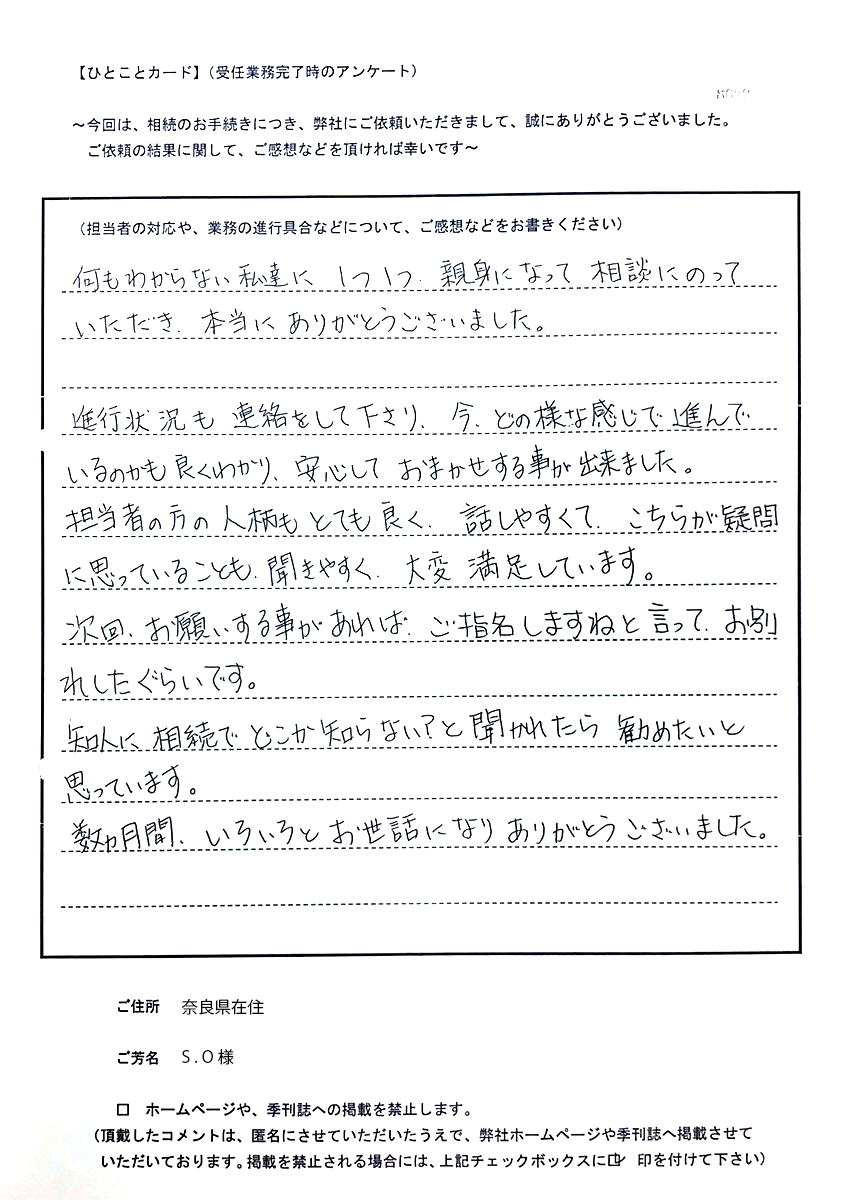 【ひとことカード】（受任業務完了時のアンケート）
～今回は、相続のお手続きにつき、弊社にご依頼いただきまして、誠にありがとうございました。
ご依頼の結果に関して、ご感想などを頂ければ幸いです～
（担当者の対応や、業務の進行具合などについて、ご感想などをお書きください）
何もわからない私達に 1つ1つ、親身になって 相談にのって
いただき、本当に ありがとうございました。
進行状況も 連絡をして下さり、今、どの様な感じで進んで
いるのかも良くわかり、安心して おまかせする事が出来ました。
担当者の方の人柄もとても良く、話しやすくて、こちらが疑問
に思っていることも、聞きやすく、大変 満足しています。
次回、お願いする事があれば、ご指名しますねと言って、お別
れしたぐらいです。
知人に 相続で どこか知らない？と聞かれたら 勧めたいと
思っています。
数ヵ月間、いろいろと お世話になり ありがとうございました。
ご住所 奈良県在住
ご芳名 S.O様
□ ホームページや、季刊誌への掲載を禁止します。
（頂戴したコメントは、匿名にさせていただいたうえで、弊社ホームページや季刊誌へ掲載させて
いただいております。掲載を禁止される場合には、上記チェックボックスに☑ 印を付けて下さい）